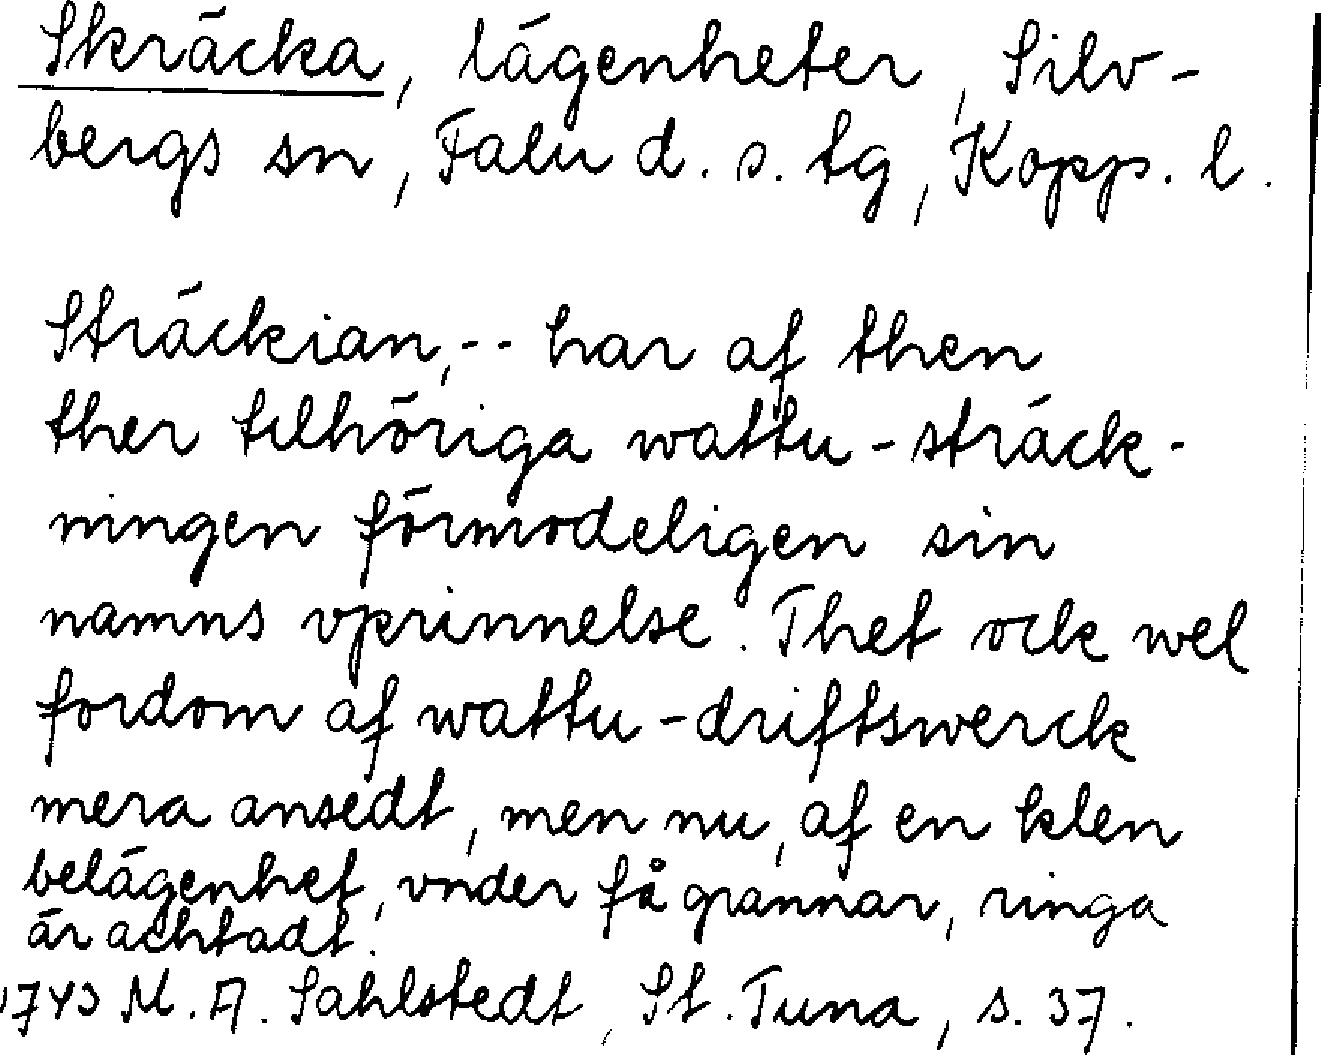 Skräcka, lägenheter, Silv-
bergs sn, Falu d. s. tg, Kopp. l.
Sträckian,-- har af then
ther tilhöriga wattu-sträck-
ningen förmodeligen sin
namns vprinnelse. Thet ock wel
fordom af wattu-driftswerck
mera ansedt, men nu, af en klen
belägenhet, vnder få grannar, ringa
är achtadt.
1743 M. A. Sahlstedt, St. Tuna, s. 37.